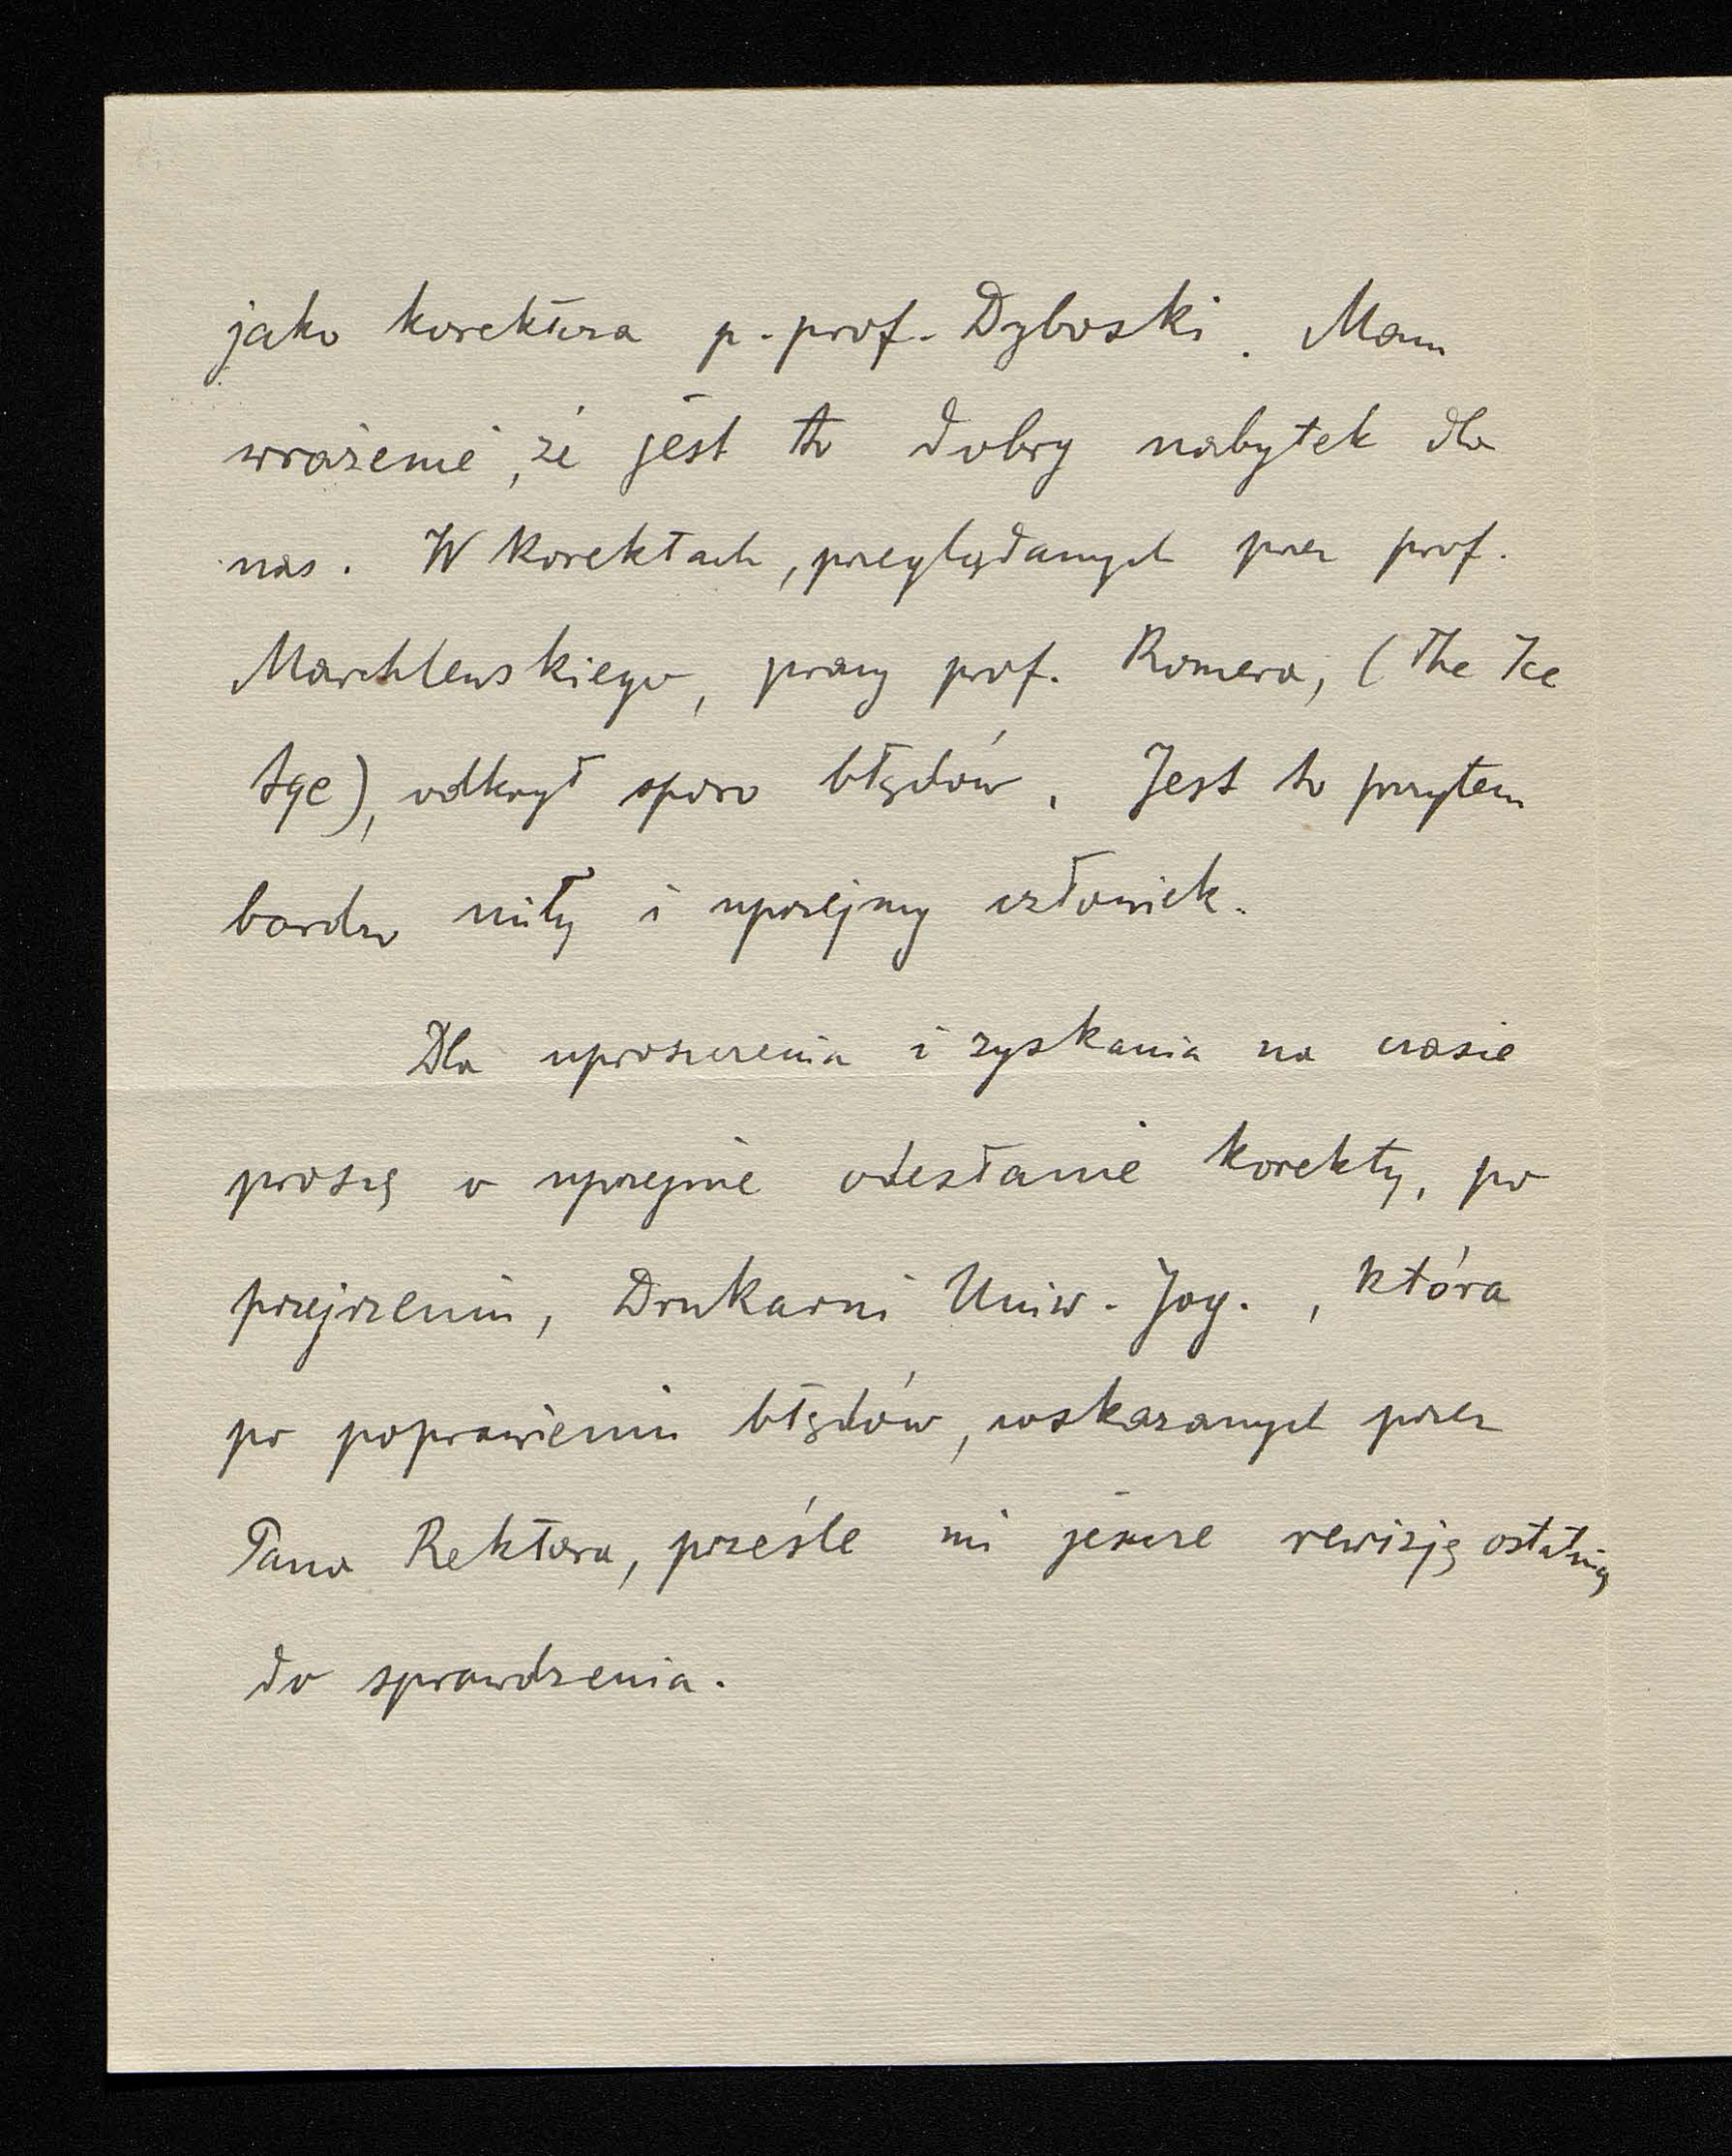 jako korektora p. prof. Dyboski. Mam
wrażenie, że jest to dobry nabytek dla
nas. W korektach, przeglądanych przez prof.
Marchlewskiego, pracy prof. Romera, (The Ice
Age), odkrył sporo błędów. Jest to przytem
bardzo miły i uprzejmy człowiek.
Dla uproszczenia i zyskania na czasie
proszę o uprzejme odesłanie korekty, po
przejrzeniu, Drukarni Uniw. Jag., która
po poprawieniu błędów, wskazanych przez
Pana Rektora, prześle mi jeszcze rewizję ostatnią
do sprawdzenia.